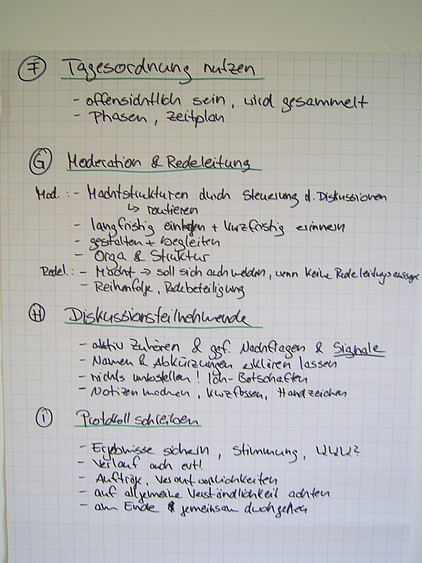 F Tagesordnung nutzen
- offensichtlich sein, wird gesammelt
- Phasen, Zeitplan
G Moderation & Redeleitung
Mod.: - Machtstrukturen durch Steuerung d. Diskussionen
↳ routieren
- langfristig + kurzfristig erinnern
- gestalten + begleiten
- Orga & Struktur
Redel.: - Macht → soll sich auch melden, wenn keine Redeleitungsaussage
- Reihenfolge, Redebeteiligung
H Diskussionsteilnehmende
- aktiv Zuhören & ggf. Nachfragen & Signale
- Namen & Abkürzungen erklären lassen
- nichts unterstellen! Ich-Botschaften
- Notizen machen, kurzfassen, Handzeichen
I Protokoll schreiben
- Ergebnisse sichern, Stimmung, WWW?
- Verlauf auch evtl.
- Aufträge, Verantwortlichkeiten
- auf allgemeine Verständlichkeit achten
- am Ende gemeinsam durchgehen